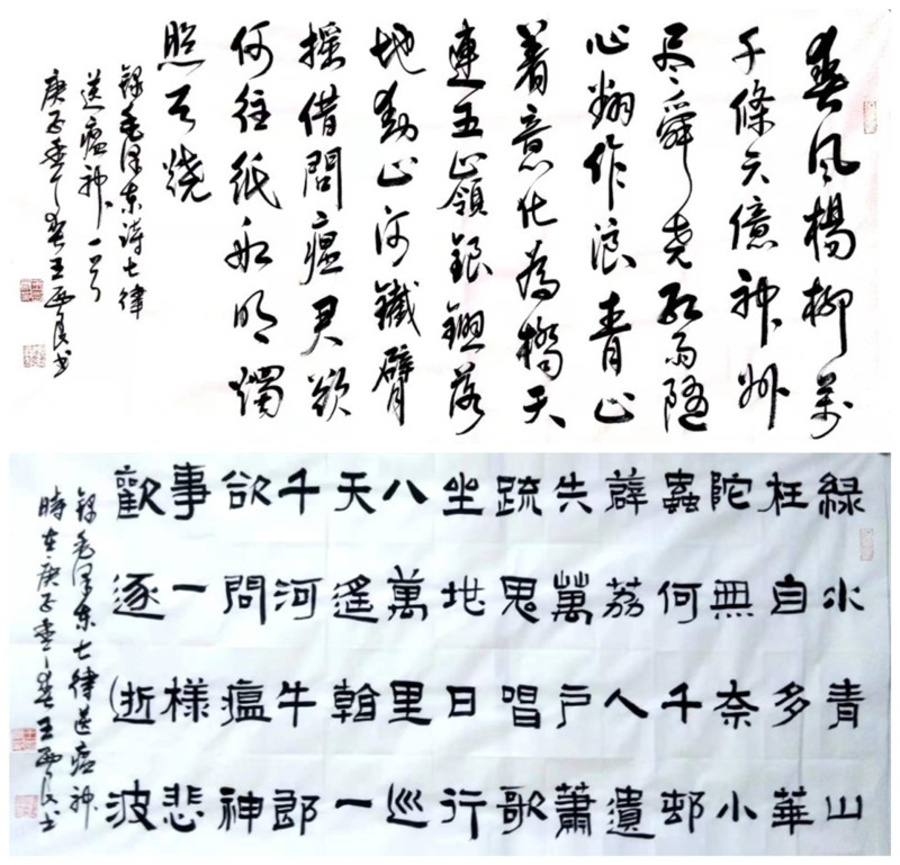 春风楊柳萬
千條六億神州
尽舜尧红雨随
心翻作浪青山
着意化為橋天
連五嶺銀鋤落
地動山河鐵臂
摇借問瘟君欲
何往纸船明燭
照天烧
錄毛泽东詩七律
送瘟神一首
庚子季春王西良书
綠水青山
枉自多華
陀無奈小
蟲何千邨
薜荔人遺
失萬戶蕭
疏鬼唱歌
坐地日行
八萬里巡
天遙看一
千河牛郎
欲問瘟神
事一樣悲
歡逐逝波
錄毛泽东七律送瘟神
時在庚子季春王西良书